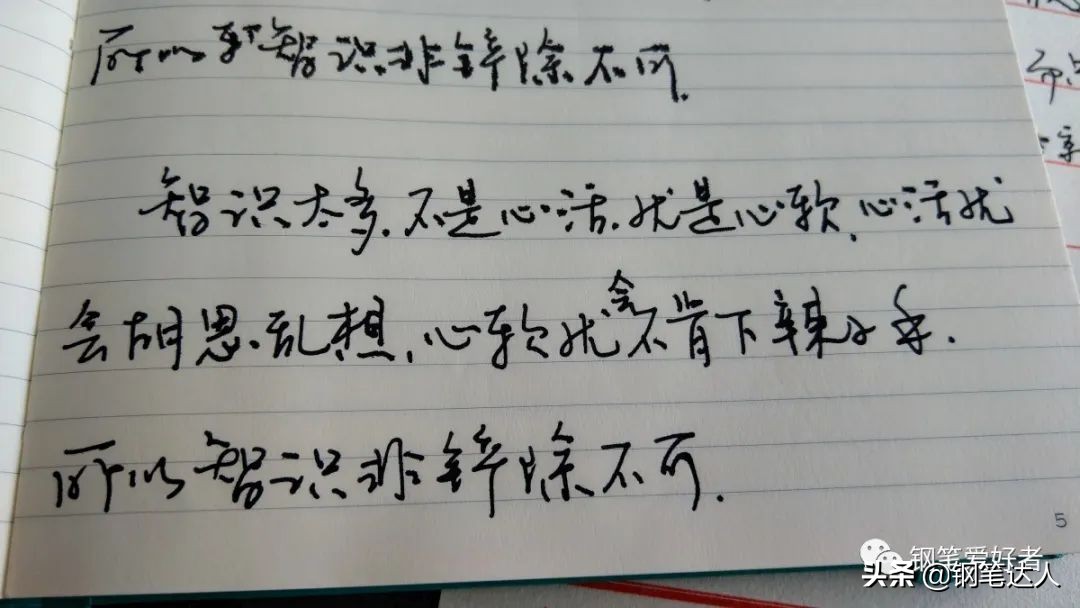 所以智识非铲除不可.
智识太多,不是心活,就是心软,心活就
会胡思乱想,心软就会不肯下辣手.
所以智识非铲除不可.
5
钢笔爱好者
头条 @钢笔达人